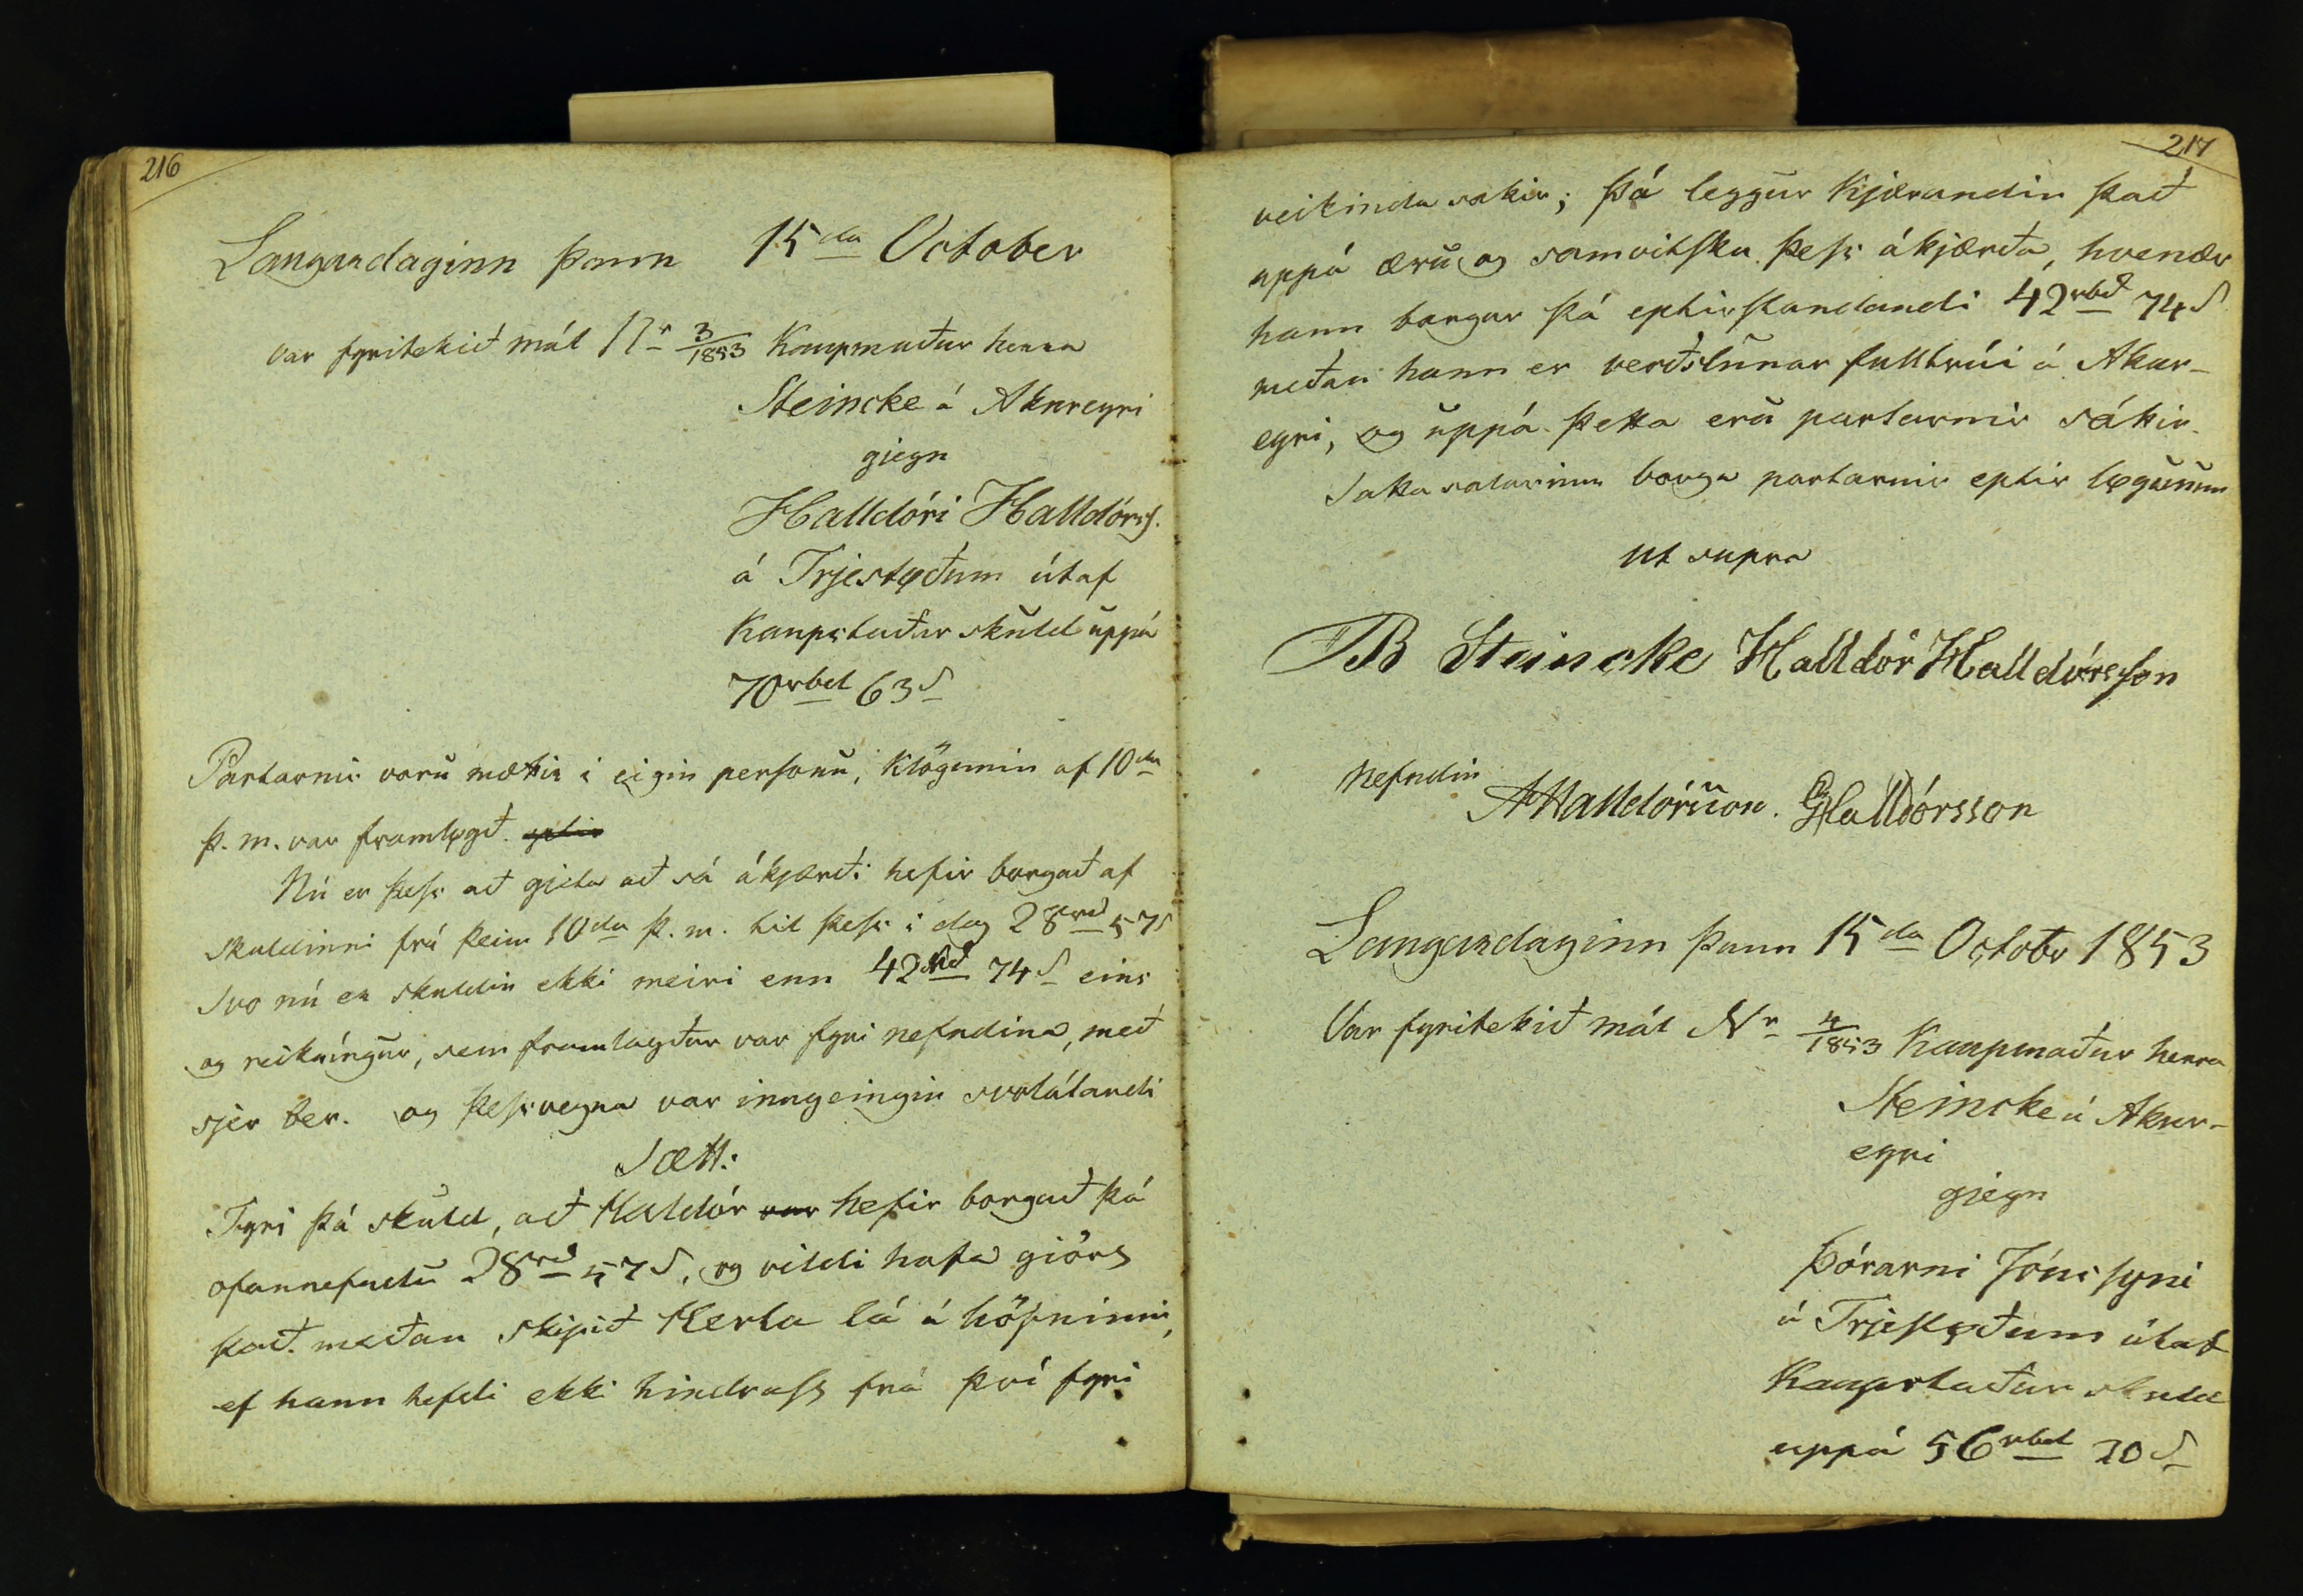 216
Laugardaginn þann 15da October
var fyritekið mál Nr 3/1853 Kaupmaður herra
Steincke á Akureyri
gjegn
Halldóri Halldórss.
á Trjestøðum útaf
Kaupstaðar skuld uppá
70rbd 63s
Partarnir voru mættir i eigin persónu, klögunin af 10da
þ. m. var framløgð. eptir
Nú er þess að gjeta að sá ákjærði hefir borgað af
skuldinni frá þeim 10da þ. m. til þess i dag 28rd 57s
Svo nú er skuldin ekki meiri enn 42rbd 74s eins
og reikníngur, sem framlagður var fyri nefndina, með
sjér ber. og þessvegna var inngeingin svolátandi
Sætt:
Fyri þá skuld, að Halldór var hefir borgað þá
ofannefndu 28rd 57s, og vildi hafa giört
það meðan skipið Herta lá á höfninni,
ef hann hefdi ekki hindrast frá því fyri
217
veikinda sakir; þá leggur Kjærandin það
uppá æru og samvitsku þess ákjærða, hvenær
hann borgar þá eptirstandandi 42rbd 74s
meðan hann er verðslunar fulltrúi á Akur-
eyri, og uppá þetta eru partarnir sáttir.
Sáttasalarium borga partarnir eptir løgunum
ut supra
B Steincke Halldór Halldórsson
Nefndin
AHalldórsson. GHalldórsson
Laugardaginn þann 15da Octobr 1853
Var fyritekið mál Nr 4/1853 Kaupmaður herra
Steincke á Akur-
eyri
gjegn
Þórarni Jónssyni
á Trjestøðum útaf
Kaupstaðar skuld
uppá 56rbd 20s